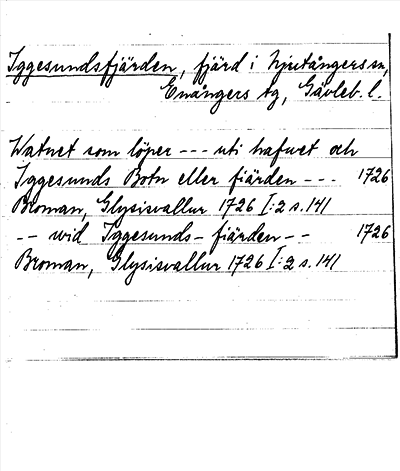 Iggesundsfjärden, fjärd i Njutångers sn,
Enångers tg, Gävleb. l.
Watnet som löper --- uti hafwet och
Iggesunds Botn eller fiärden --- 1726
Broman, Glysisvallur 1726 I:2 s. 141
-- wid Iggesunds-fiärden -- 1726
Broman, Glysisvallur 1726 I:2 s. 141